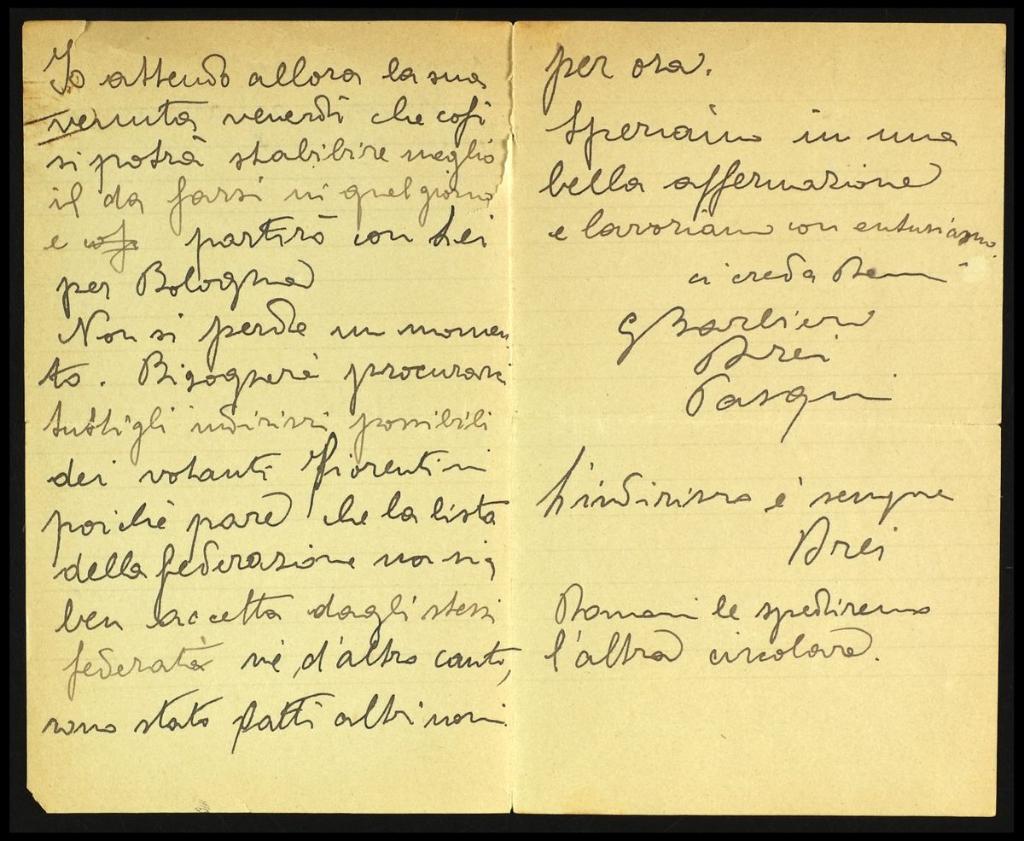 Io attendo allora la sua
venuta venerdì che così
si potrà stabilire meglio
il da farsi in quel giorno
e così partirò con Lei
per Bologna
Non si perde un momen
to. Bisognerà procurarci
tutti gli indirizzi possibili
dei votanti fiorentini
poichè pare che la lista
della federazione non sia
ben accetta dagli stessi
federati nè d'altro canto,
sono stati fatti altri nomi
per ora.
Speriamo in una
bella affermazione
e lavoriamo con entusiasmo.
ci creda
G Barbieri
Drei
Pasqui
L'indirizzo è sempre
Drei
Domani le spediremo
l'altra circolare.